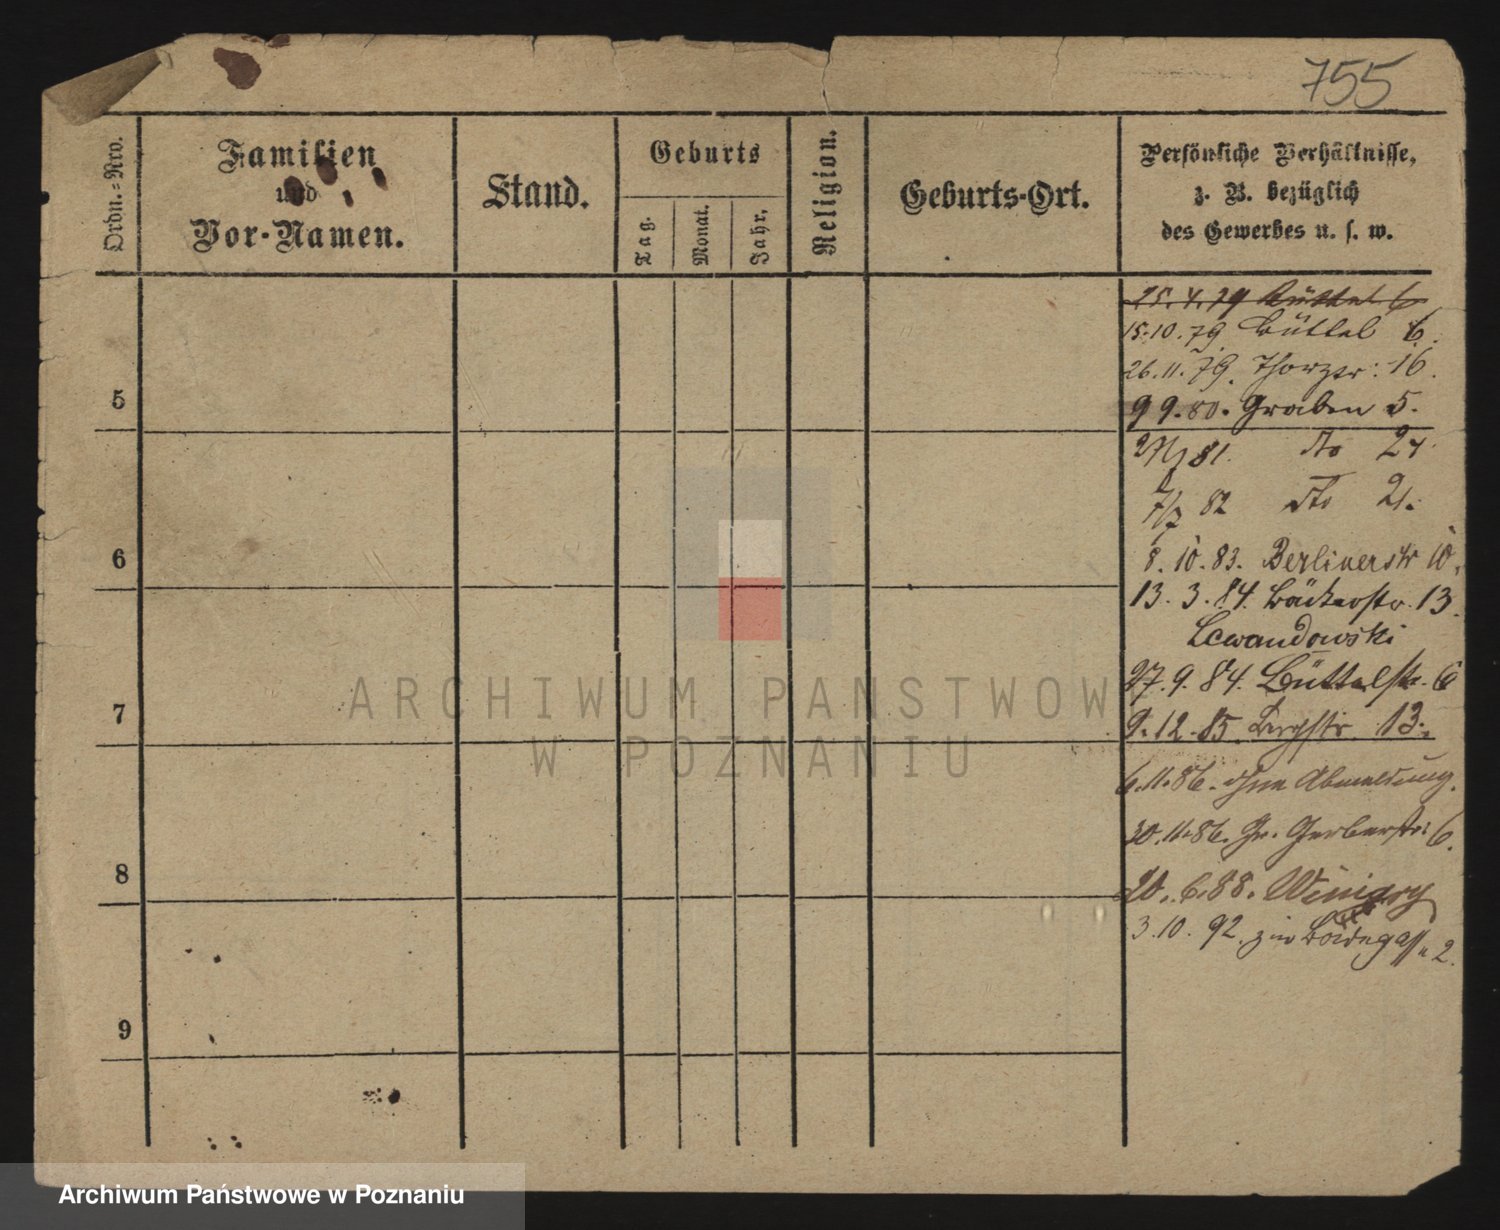 755
Ordn.-Nro.
Familien
und
Vor-Namen.
Stand.
Geburts
Tag.
Monat.
Jahr.
Religion.
Geburts-Ort.
Persönliche Verhältnisse,
z. B. bezüglich
des Gewerbes u. s. w.
25.4.79 Büttel 6
15.10.79 Büttel 6.
26.11.79. 16.
5
9 9.80. Graben 5.
81. dto 24
82 dto 21.
6
8.10.83. Berlinerstr 10.
13.3.84. Bäckerstr. 13.
Lewandowski
27.9.84. Büttelstr. 6
7
9.12.85. Bergstr. 13.
6.11.86. ohne Abmeldung.
30.11.86. Gr. Gerberstr. 6.
8
20.6.88. Winiary
3.10.92. 2.
9
ARCHIWUM PANSTWOW
W POZNANIU
Archiwum Państwowe w Poznaniu